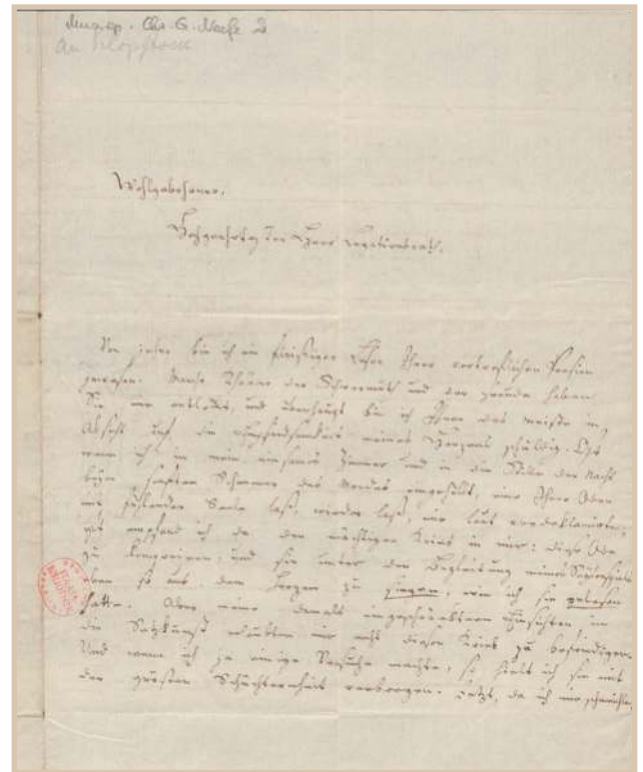 Chr. G. Neefe
An Klopstock
Wohlgebohrner,
Hochgeehrtester Herr Legationsrath.
Von jeher bin ich ein fleissiger Leser Ihrer vortreflichen Poesien
gewesen. Manche Thräne der Schwermuth und der Freude haben
Sie mir entlockt, und überhaupt bin ich Ihnen das meiste in
Absicht auf die Empfindsamkeit meines Herzens schuldig. Oft
wenn ich in mein einsames Zimmer und in die Stille der Nacht
beym sanften Schimmer des Mondes eingehüllt, eine Ihrer Oden
mit fühlender Seele las, wieder las, mir laut vordeklamirte,
empfand ich da den mächtigen Trieb in mir: diese Ode
zu komponiren, und sie unter der Begleitung meines
eben so aus dem Herzen zu singen, wie ich sie gelesen
hatte. Aber meine damals eingeschränktern Einsichten in
die Setzkunst erlaubten mir nicht diesen Trieb zu befriedigen.
Und wenn ich ja einige Versuche machte, so hielt ich sie mit
der grösten Schüchternheit verborgen. Jetzt, da ich mir schmeichle,